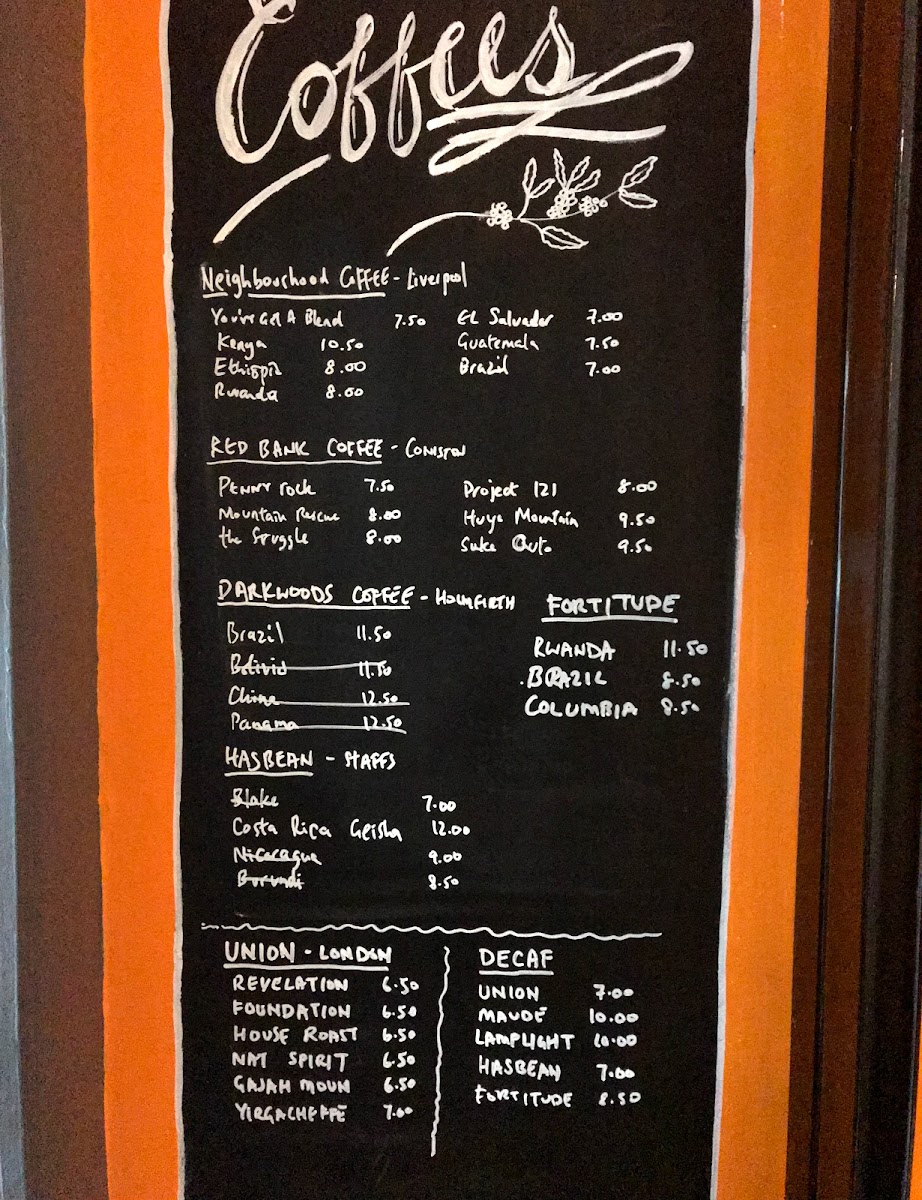 Coffees
Neighbourhood Coffee - Liverpool
You've Got A Blend 7.50
Kenya 10.50
Ethiopia 8.00
Rwanda 8.00
El Salvador 7.00
Guatemala 7.50
Brazil 7.00
RED BANK COFFEE - CONISTON
Penny rock 7.50
Mountain Rescue 8.00
the Struggle 8.00
Project 121 8.00
Huye Mountain 9.50
Suke Quto 9.50
DARKWOODS COFFEE - HOLMFIRTH
Brazil 11.50
Bolivia 11.50
China 12.50
Panama 12.50
FORTITUDE
RWANDA 11.50
BRAZIL 8.50
COLUMBIA 8.50
HASBEAN - STAFFS
Blake 7.00
Costa Rica Geisha 12.00
Nicaragua 9.00
Burundi 8.50
UNION - LONDON
REVELATION 6.50
FOUNDATION 6.50
HOUSE ROAST 6.50
NAT SPIRIT 6.50
GAJAH MOUN 6.50
YIRGACHEFFE 7.00
DECAF
UNION 7.00
MAUDE 10.00
LAMPLIGHT 10.00
HASBEAN 7.00
FORTITUDE 8.50